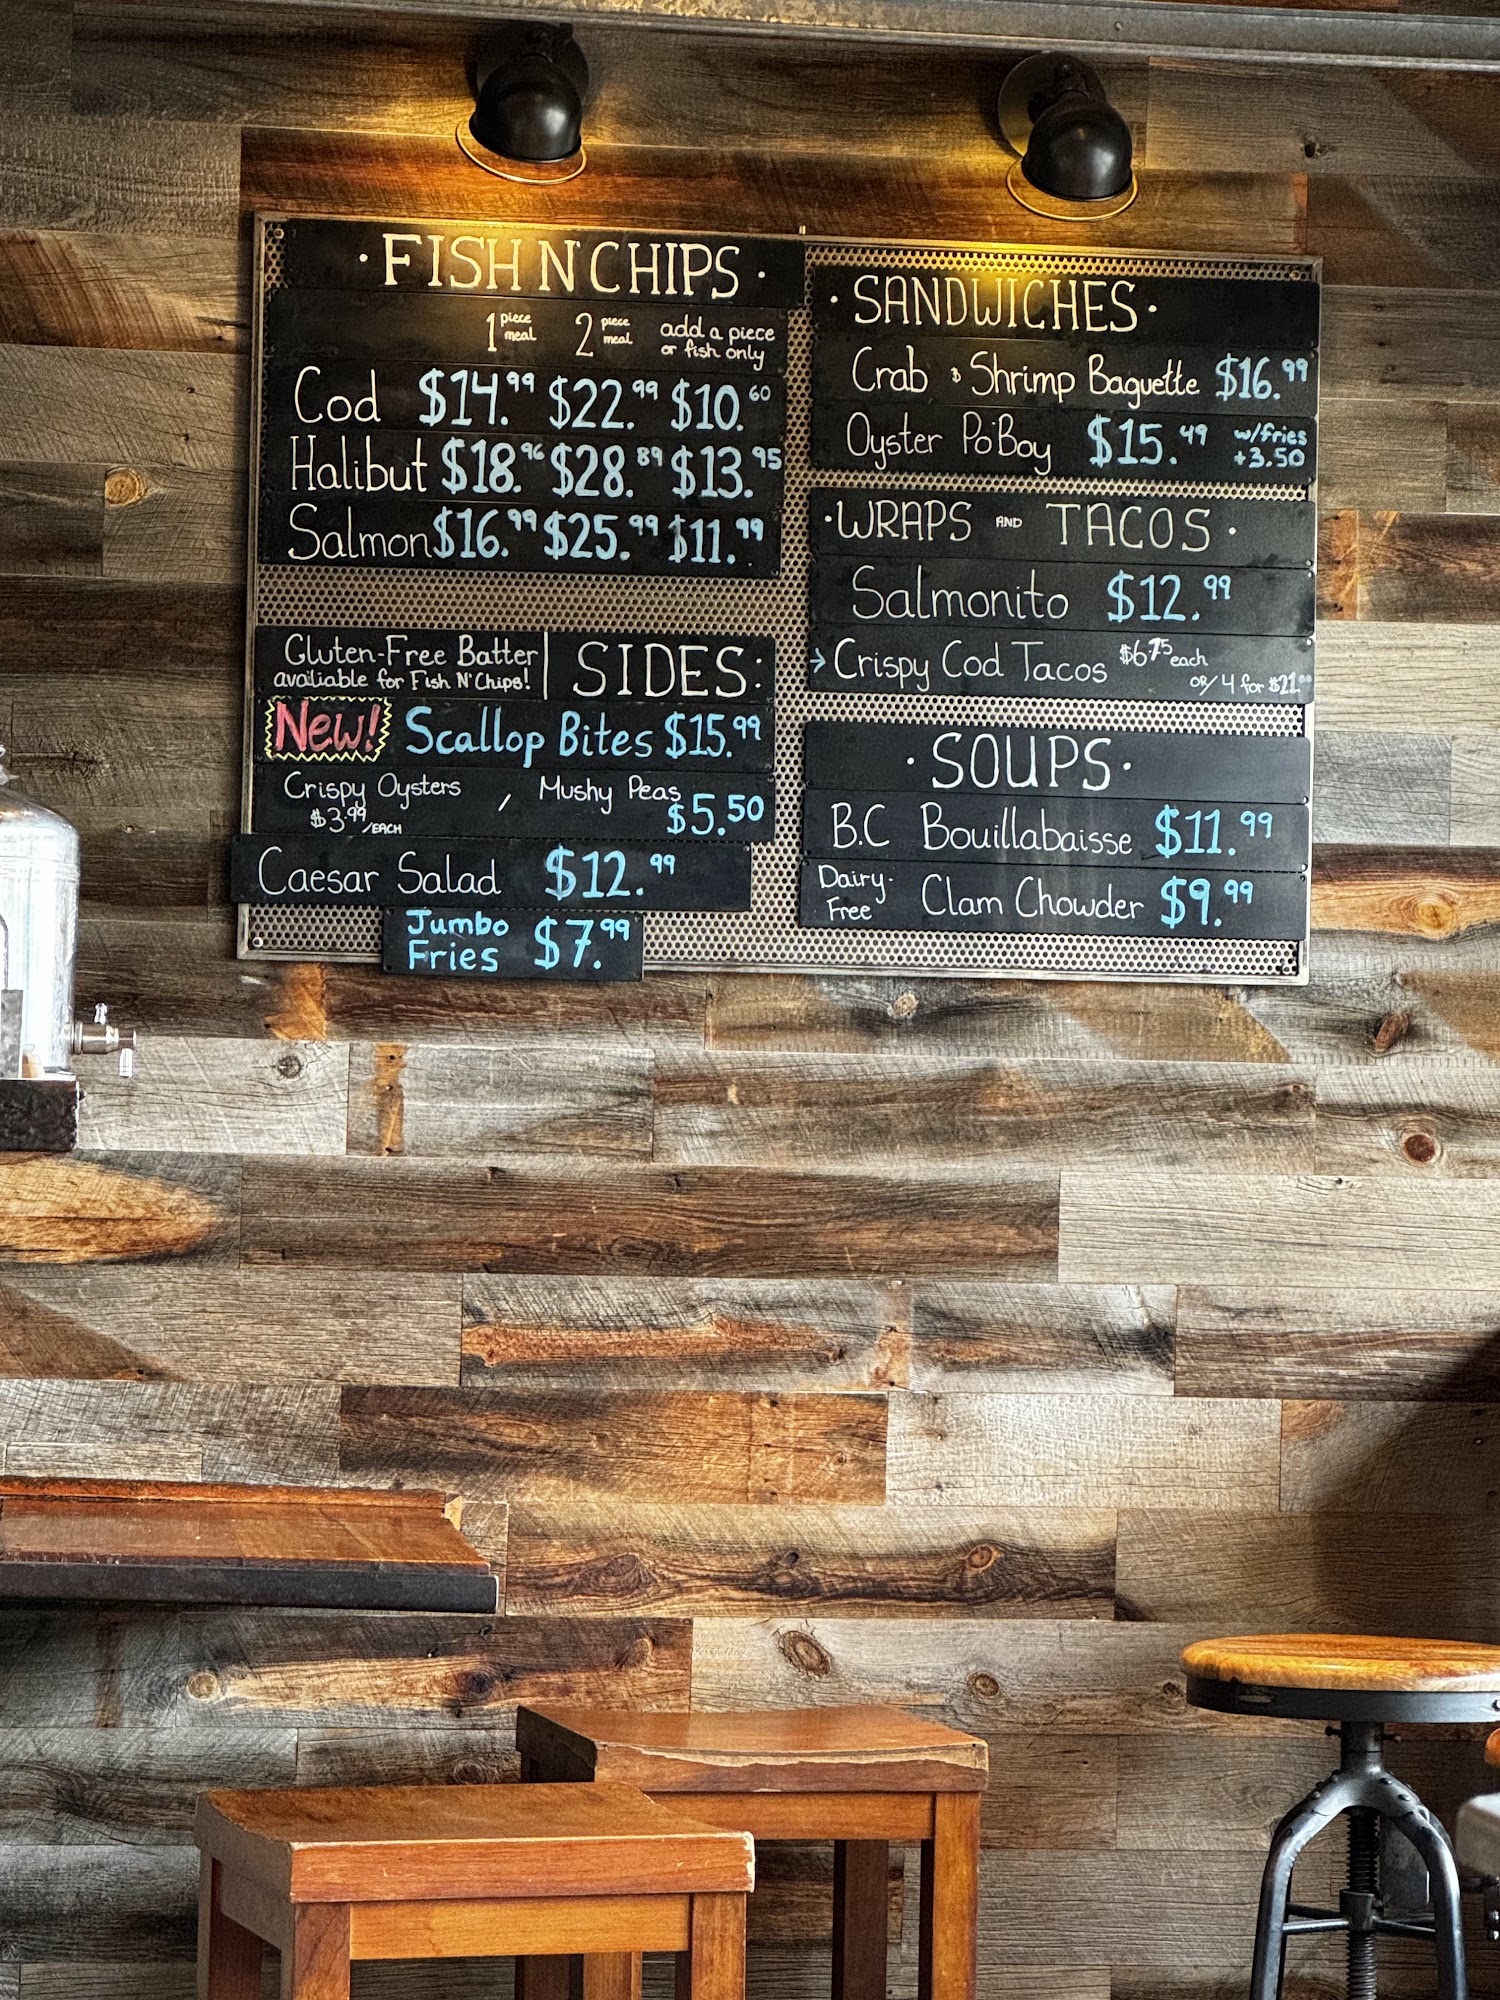 · FISH N' CHIPS ·
1 piece meal 2 piece meal add a piece or fish only
Cod $14.99 $22.99 $10.60
Halibut $18.96 $28.89 $13.95
Salmon $16.99 $25.99 $11.99
Gluten-Free Batter
avaliable for Fish N' Chips!
SIDES:
New! Scallop Bites $15.99
Crispy Oysters $3.99/EACH / Mushy Peas $5.50
Caesar Salad $12.99
Jumbo Fries $7.99
· SANDWICHES ·
Crab & Shrimp Baguette $16.99
Oyster Po'Boy $15.49 w/fries +3.50
· WRAPS AND TACOS ·
Salmonito $12.99
→ Crispy Cod Tacos $6.75 each
OR/ 4 for
· SOUPS ·
B.C Bouillabaisse $11.99
Dairy-Free Clam Chowder $9.99